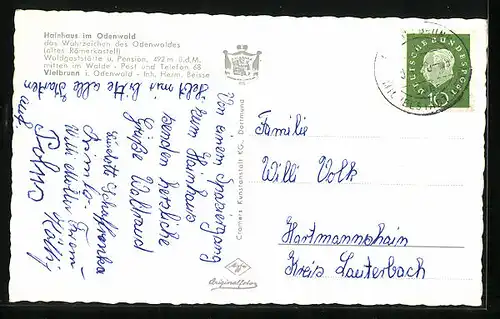 Hainhaus im Odenwald
das Wahrzeichen des Odenwaldes
(altes Römerkastell)
Waldgaststätte u. Pension, 492 m ü.d.M.
mitten im Walde - Post und Telefon 68
Vielbrunn i. Odenwald - Inh. Herm. Beisse
Hebt mir bitte alle Karten
auf
Von einem Spaziergang
zum Hainhaus
senden herzliche
Grüße Waltraud
Willi
Käthi
Cramers Kunstanstalt KG., Dortmund
Originalfoto
DEUTSCHE BUNDESPOST
10
Familie
Willi Volk
Hartmannshain
Kreis Lauterbach